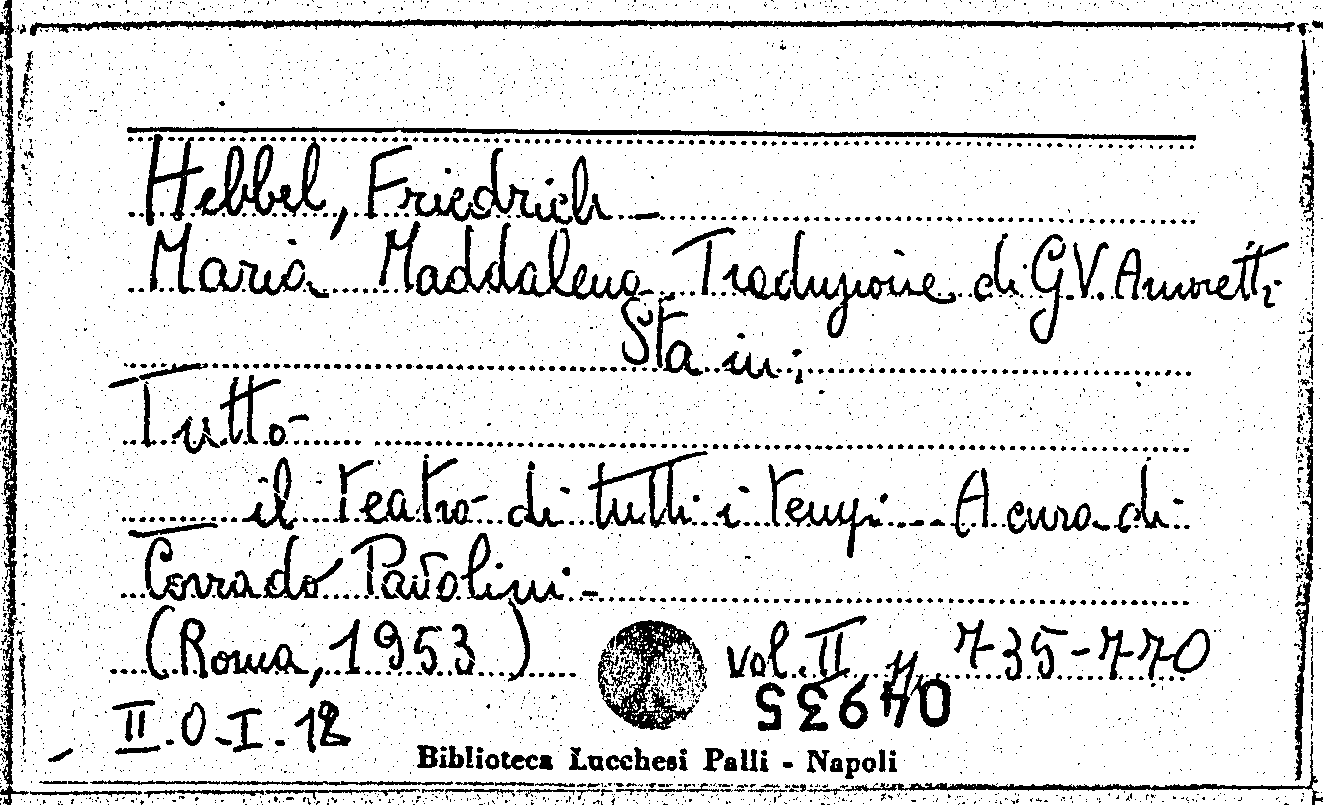 Hebbel, Friedrich -
Maria Maddalena Traduzione di G.V. Amoretti
Sta in:
Tutto
il teatro di tutti i tempi - A cura di
Corrado Pavolini -
(Roma, 1953) vol. II pp. 735-770
II.O.I.18
Biblioteca Lucchesi Palli - Napoli